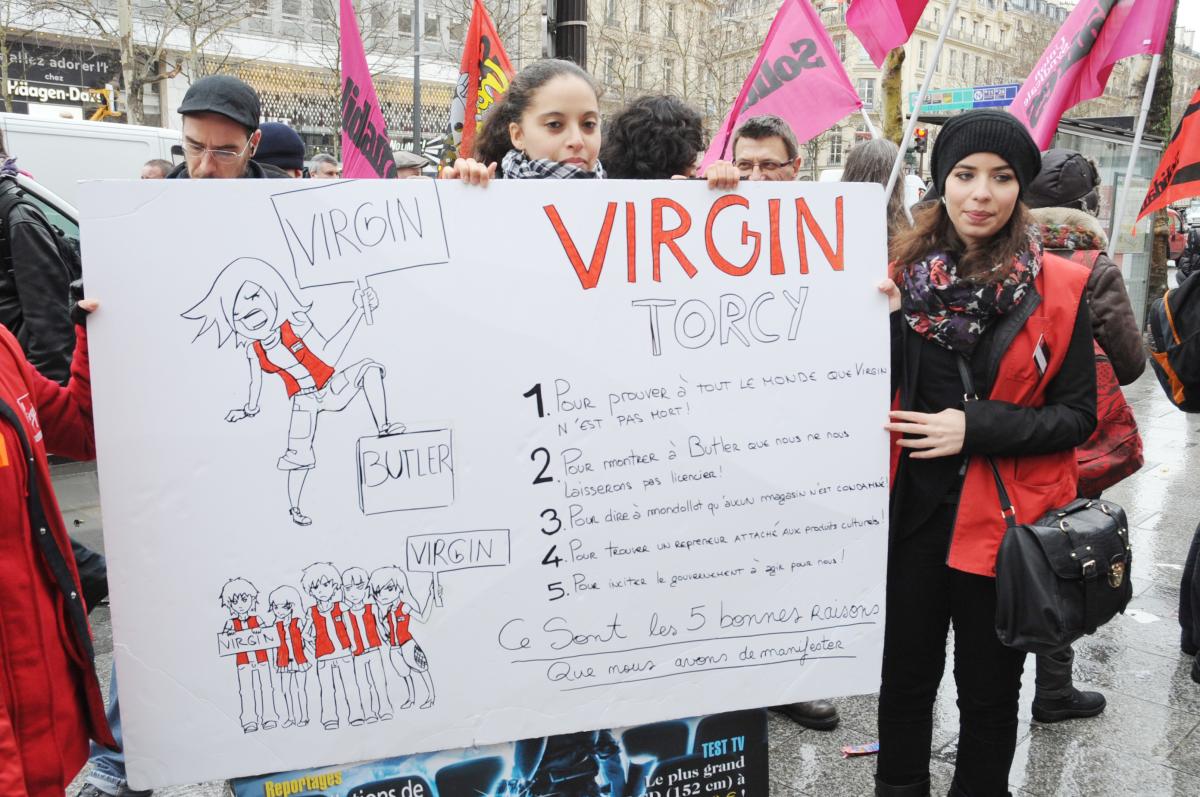 allez adorer!"
chez
Häagen-Daz
Solid
VIRGIN
BUTLER
VIRGIN
VIRGIN
VIRGIN
TORCY
1. Pour prouver à tout le monde que Virgin
n'est pas mort!
2. Pour montrer à Butler que nous ne nous
laisserons pas licencier!
3. Pour dire à mondollot qu'aucun magasin n'est condamné!
4. Pour trouver un repreneur attaché aux produits culturels!
5. Pour inciter le gouvernement à agir pour nous!
Ce Sont les 5 bonnes raisons
Que nous avons de manifester
Reportages
TEST TV
Le plus grand
(152 cm) à